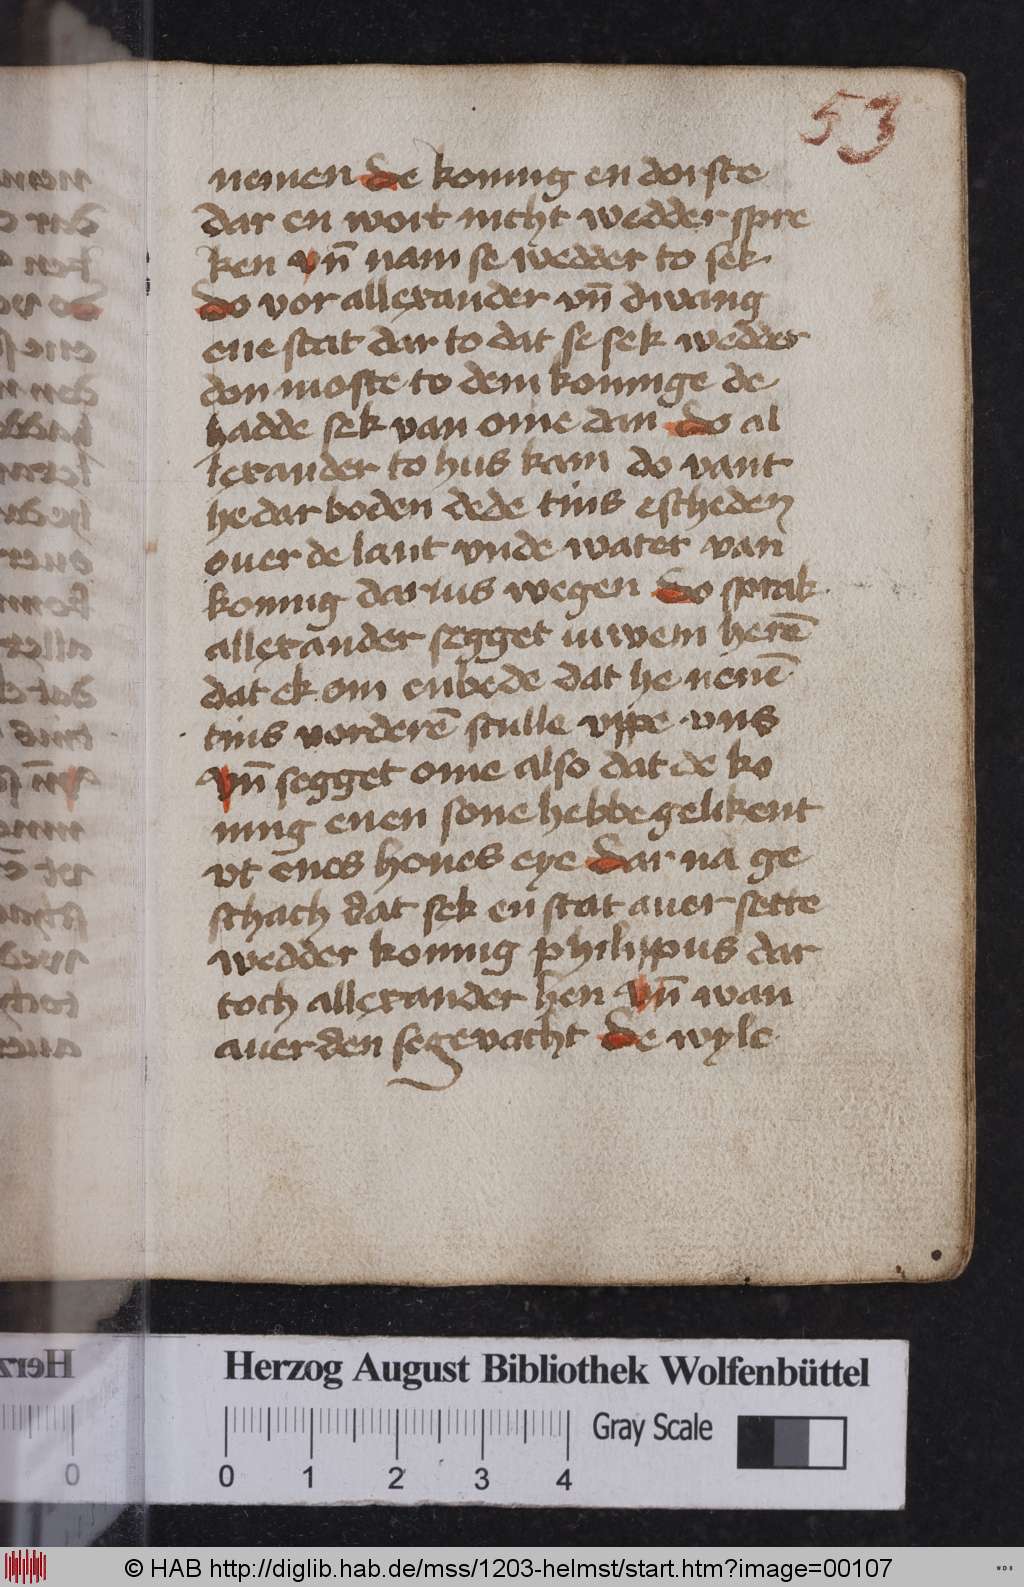 53
nemen de konnig en dorste
dar en wort nicht wedder spre
ken vn̄ nam se wedder to sek
do vor allexander vn̄ dwang
ene stat dar to dat se sek wedder
don moste to dem koninge de
hadde sek van ome dan do al
lexander to hus kam do vant
he dar boden dede tins escheden
ouer de lant vnde water van
konnig darius wegen do sprak
allexander segget iuwem herē
dat ek om enbede dat he nenē
tins vorderē sculle vppe vns
vn̄ segget ome also dat de ko
ning enen sone hebbe gelikent
vt ēnes hones eye dar na ge
schach dat sek en stat auer sette
wedder konnig philippus dar
toch allexander hen vn̄ wan
auer den segevacht de wyle
Herzog August Bibliothek Wolfenbüttel
Gray Scale
0 1 2 3 4
© HAB http://diglib.hab.de/mss/1203-helmst/start.htm?image=00107